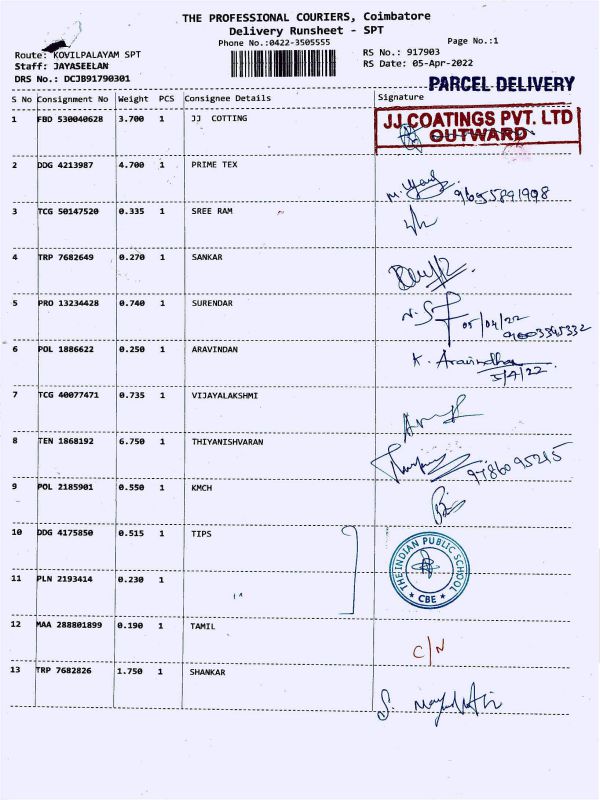 THE PROFESSIONAL COURIERS, Coimbatore
Delivery Runsheet - SPT
Phone No.:0422-3505555
Page No.:1
Route: KOVILPALAYAM SPT
RS No.: 917903
Staff: JAYASEELAN
RS Date: 05-Apr-2022
DRS No.: DCJB91790301
PARCEL DELIVERY
S No Consignment No Weight PCS Consignee Details Signature
1 FBD 530040628 3.700 1 JJ COTTING
JJ COATINGS PVT. LTD
OUTWARD
2 DDG 4213987 4.700 1 PRIME TEX
9655891908
3 TCG 50147520 0.335 1 SREE RAM
4 TRP 7682649 0.270 1 SANKAR
5 PRO 13234428 0.740 1 SURENDAR
05/04/22
6 POL 1886622 0.250 1 ARAVINDAN
K. Aravindhan
5/4/22.
7 TCG 40077471 0.735 1 VIJAYALAKSHMI
8 TEN 1868192 6.750 1 THIYANISHVARAN
9786095215
9 POL 2185901 0.550 1 KMCH
10 DDG 4175850 0.515 1 TIPS
THE INDIAN PUBLIC SCHOOL
★ CBE ★
11 PLN 2193414 0.230 1 "
12 MAA 288801899 0.190 1 TAMIL
C/N
13 TRP 7682826 1.750 1 SHANKAR